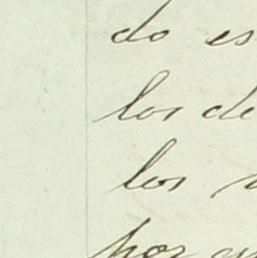 do es
los de
los
por